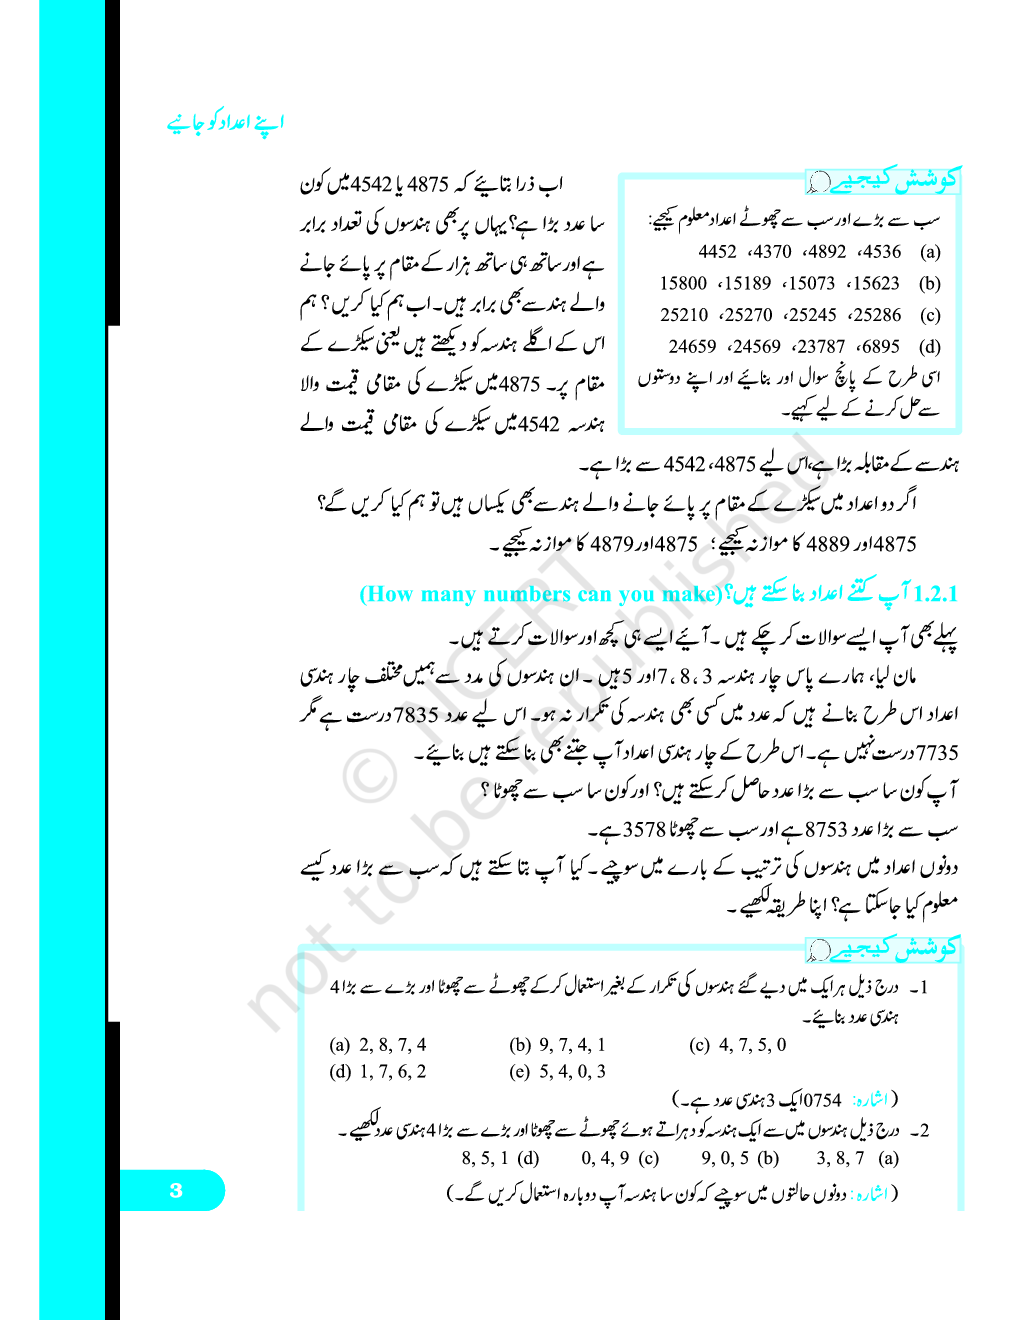 اپنے اعداد کو جانیے
کوشش کیجیے
سب سے بڑے اور سب سے چھوٹے اعداد معلوم کیجیے:
(a) 4536، 4892، 4370، 4452
(b) 15623، 15073، 15189، 15800
(c) 25286، 25245، 25270، 25210
(d) 6895، 23787، 24569، 24659
اسی طرح کے پانچ سوال اور بنائیے اور اپنے دوستوں
سے حل کرنے کے لیے کہیے۔
اب ذرا بتایئے کہ 4875 یا 4542 میں کون
سا عدد بڑا ہے؟ یہاں پر بھی ہندسوں کی تعداد برابر
ہے اور ساتھ ہی ساتھ ہزار کے مقام پر پائے جانے
والے ہندسے بھی برابر ہیں۔ اب ہم کیا کریں؟ ہم
اس کے اگلے ہندسہ کو دیکھتے ہیں یعنی سیکڑے کے
مقام پر۔ 4875 میں سیکڑے کی مقامی قیمت والا
ہندسہ 4542 میں سیکڑے کی مقامی قیمت والے
ہندسے کے مقابلہ بڑا ہے، اس لیے 4875، 4542 سے بڑا ہے۔
اگر دو اعداد میں سیکڑے کے مقام پر پائے جانے والے ہندسے بھی یکساں ہیں تو ہم کیا کریں گے؟
4875 اور 4889 کا موازنہ کیجیے؛ 4875 اور 4879 کا موازنہ کیجیے۔
1.2.1 آپ کتنے اعداد بنا سکتے ہیں؟ (How many numbers can you make)
پہلے بھی آپ ایسے سوالات کر چکے ہیں۔ آیئے ایسے ہی کچھ اور سوالات کرتے ہیں۔
مان لیا، ہمارے پاس چار ہندسہ 3، 8، 7 اور 5 ہیں۔ ان ہندسوں کی مدد سے ہمیں مختلف چار ہندسی
اعداد اس طرح بنانے ہیں کہ عدد میں کسی بھی ہندسہ کی تکرار نہ ہو۔ اس لیے عدد 7835 درست ہے مگر
7735 درست نہیں ہے۔ اس طرح کے چار ہندسی اعداد آپ جتنے بھی بنا سکتے ہیں بنائیے۔
آپ کون سا سب سے بڑا عدد حاصل کر سکتے ہیں؟ اور کون سا سب سے چھوٹا؟
سب سے بڑا عدد 8753 ہے اور سب سے چھوٹا 3578 ہے۔
دونوں اعداد میں ہندسوں کی ترتیب کے بارے میں سوچیے۔ کیا آپ بتا سکتے ہیں کہ سب سے بڑا عدد کیسے
معلوم کیا جا سکتا ہے؟ اپنا طریقہ لکھیے۔
کوشش کیجیے
1۔ درج ذیل ہر ایک میں دیے گئے ہندسوں کی تکرار کے بغیر استعمال کر کے چھوٹے سے چھوٹا اور بڑے سے بڑا 4
ہندسی عدد بنایئے۔
(a) 2, 8, 7, 4 (b) 9, 7, 4, 1 (c) 4, 7, 5, 0
(d) 1, 7, 6, 2 (e) 5, 4, 0, 3
(اشارہ: 0754 ایک 3 ہندسی عدد ہے۔)
2۔ درج ذیل ہندسوں میں سے ایک ہندسہ کو دہراتے ہوئے چھوٹے سے چھوٹا اور بڑے سے بڑا 4 ہندسی عدد لکھیے۔
(a) 3, 8, 7 (b) 9, 0, 5 (c) 0, 4, 9 (d) 8, 5, 1
(اشارہ: دونوں حالتوں میں سوچیے کہ کون سا ہندسہ آپ دوبارہ استعمال کریں گے۔)
3
© NCERT
not to be republished